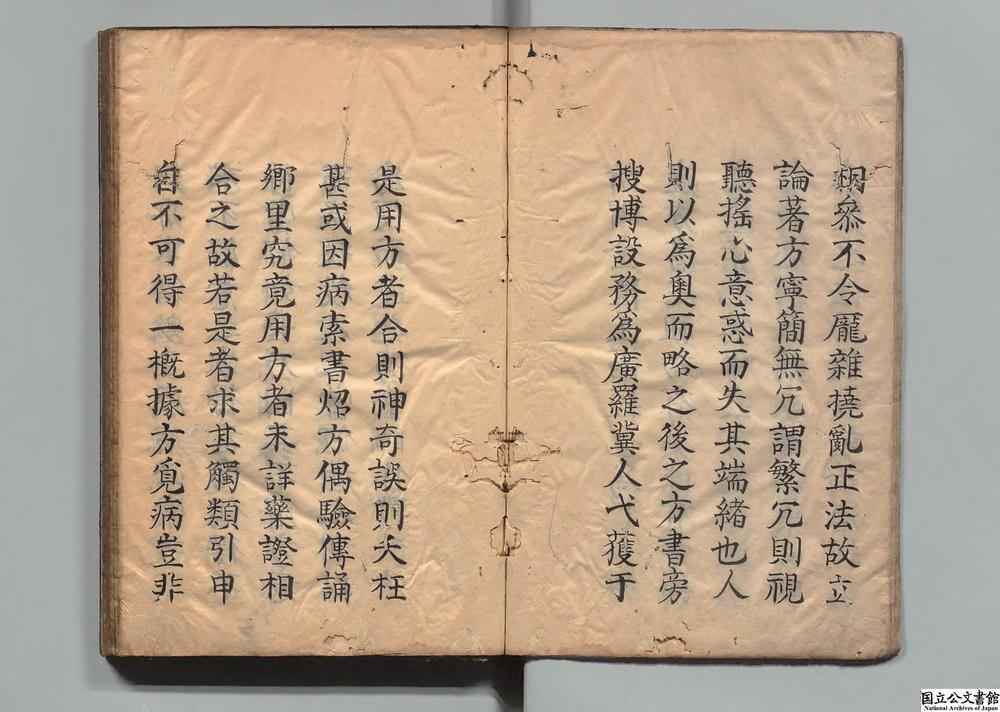 相叅不令厖雜撓亂正法故立
論著方寧簡無冗謂繁冗則視
聽搖心意惑而失其端緒也人
則以為奧而略之後之方書旁
搜博設務為廣羅冀人弋獲于
是用方者合則神奇誤則夭枉
甚或因病索書炤方偶驗傳誦
鄉里究竟用方者未詳藥證相
合之故若是者求其觸類引申
自不可得一概據方覓病豈非
国立公文書館
National Archives of Japan